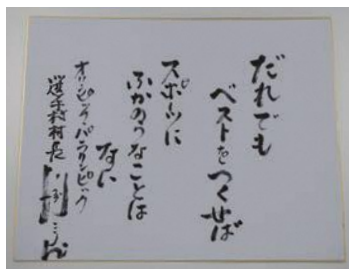 だれでも
ベストをつくせば
スポーツに
ふかのうなことは
なに
オリンピック・パラリンピック
選手村村長